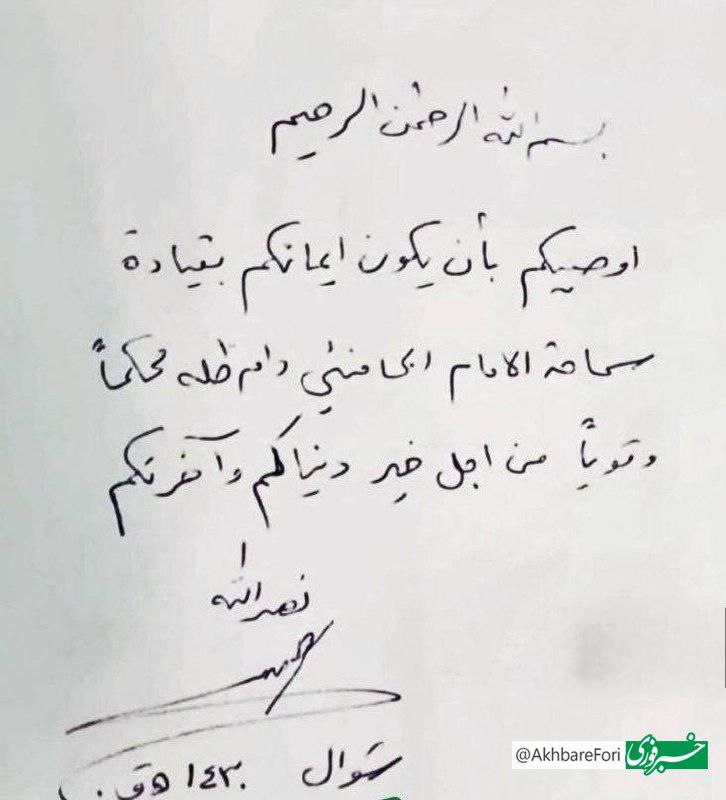 بسم الله الرحمن الرحيم
اوصيكم بأن يكون ايمانكم بقيادة
سماحة الامام الخامنئي دام ظله محكماً
وقوياً من اجل خير دنياكم وآخرتكم
نصر الله
شوال ١٤٣٠ هـ ق.
@AkhbareFori خبرفوری